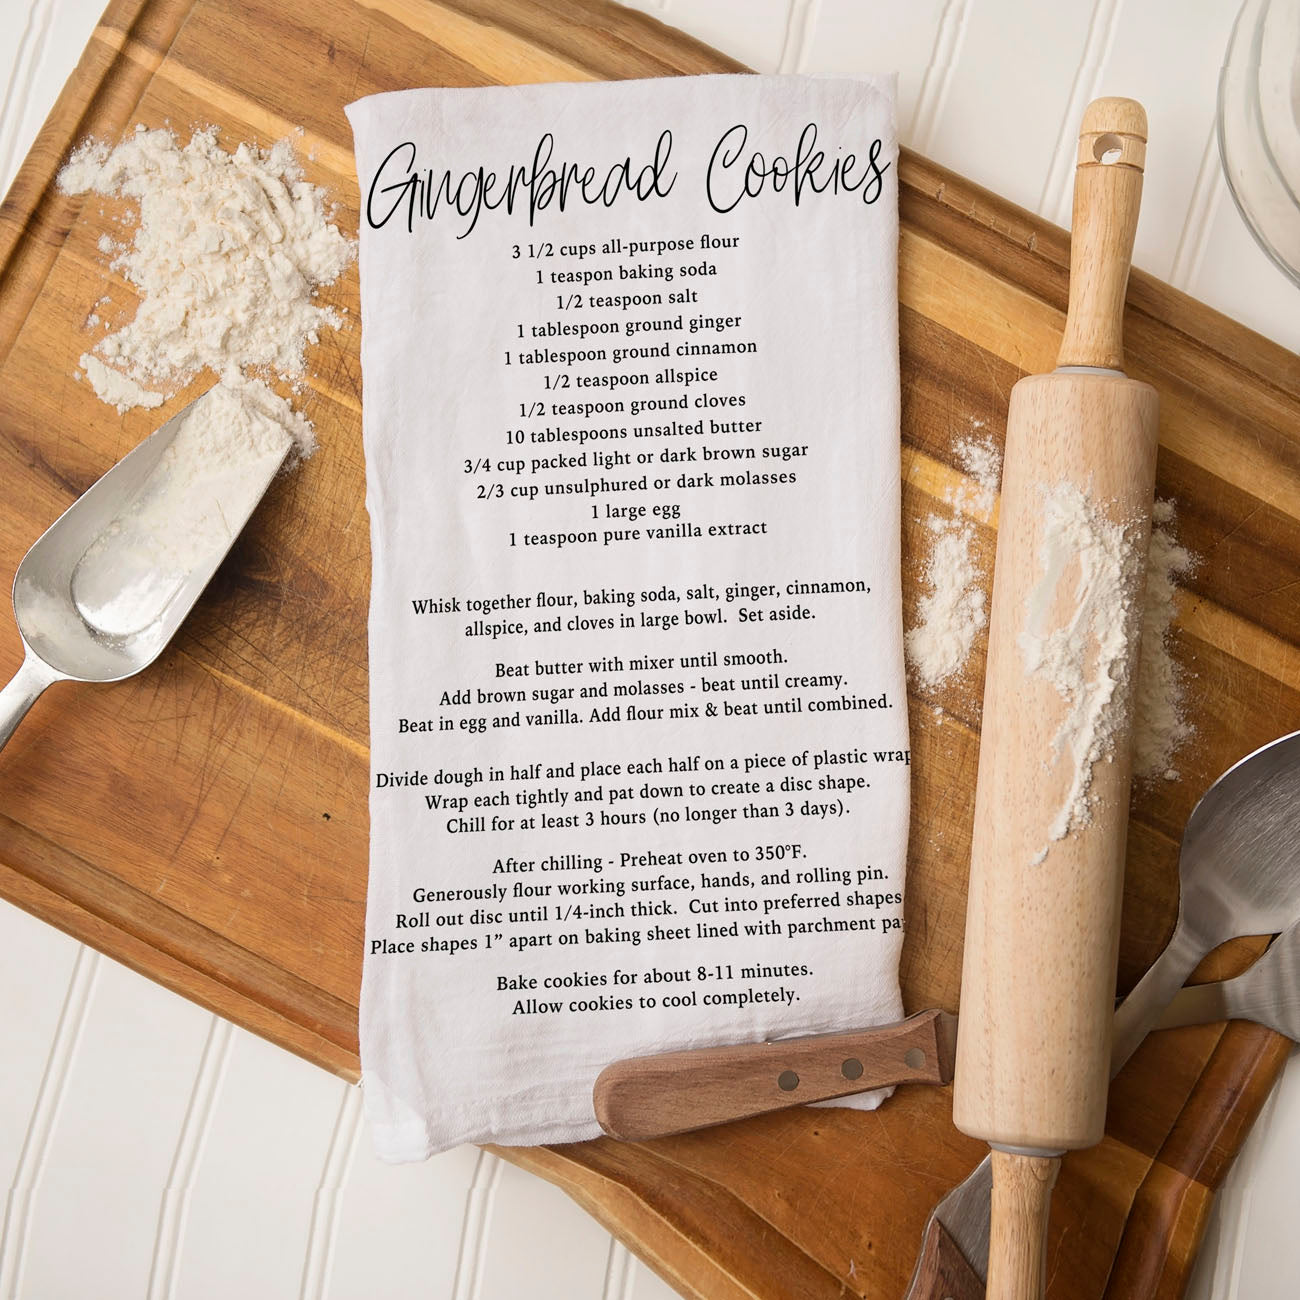 Gingerbread Cookies
3 1/2 cups all-purpose flour
1 teaspon baking soda
1/2 teaspoon salt
1 tablespoon ground ginger
1 tablespoon ground cinnamon
1/2 teaspoon allspice
1/2 teaspoon ground cloves
10 tablespoons unsalted butter
3/4 cup packed light or dark brown sugar
2/3 cup unsulphured or dark molasses
1 large egg
1 teaspoon pure vanilla extract
Whisk together flour, baking soda, salt, ginger, cinnamon,
allspice, and cloves in large bowl.  Set aside.
Beat butter with mixer until smooth.
Add brown sugar and molasses - beat until creamy.
Beat in egg and vanilla. Add flour mix & beat until combined.
Divide dough in half and place each half on a piece of plastic wrap
Wrap each tightly and pat down to create a disc shape.
Chill for at least 3 hours (no longer than 3 days).
After chilling - Preheat oven to 350°F.
Generously flour working surface, hands, and rolling pin.
Roll out disc until 1/4-inch thick.  Cut into preferred shapes
Place shapes 1” apart on baking sheet lined with parchment pa
Bake cookies for about 8-11 minutes.
Allow cookies to cool completely.